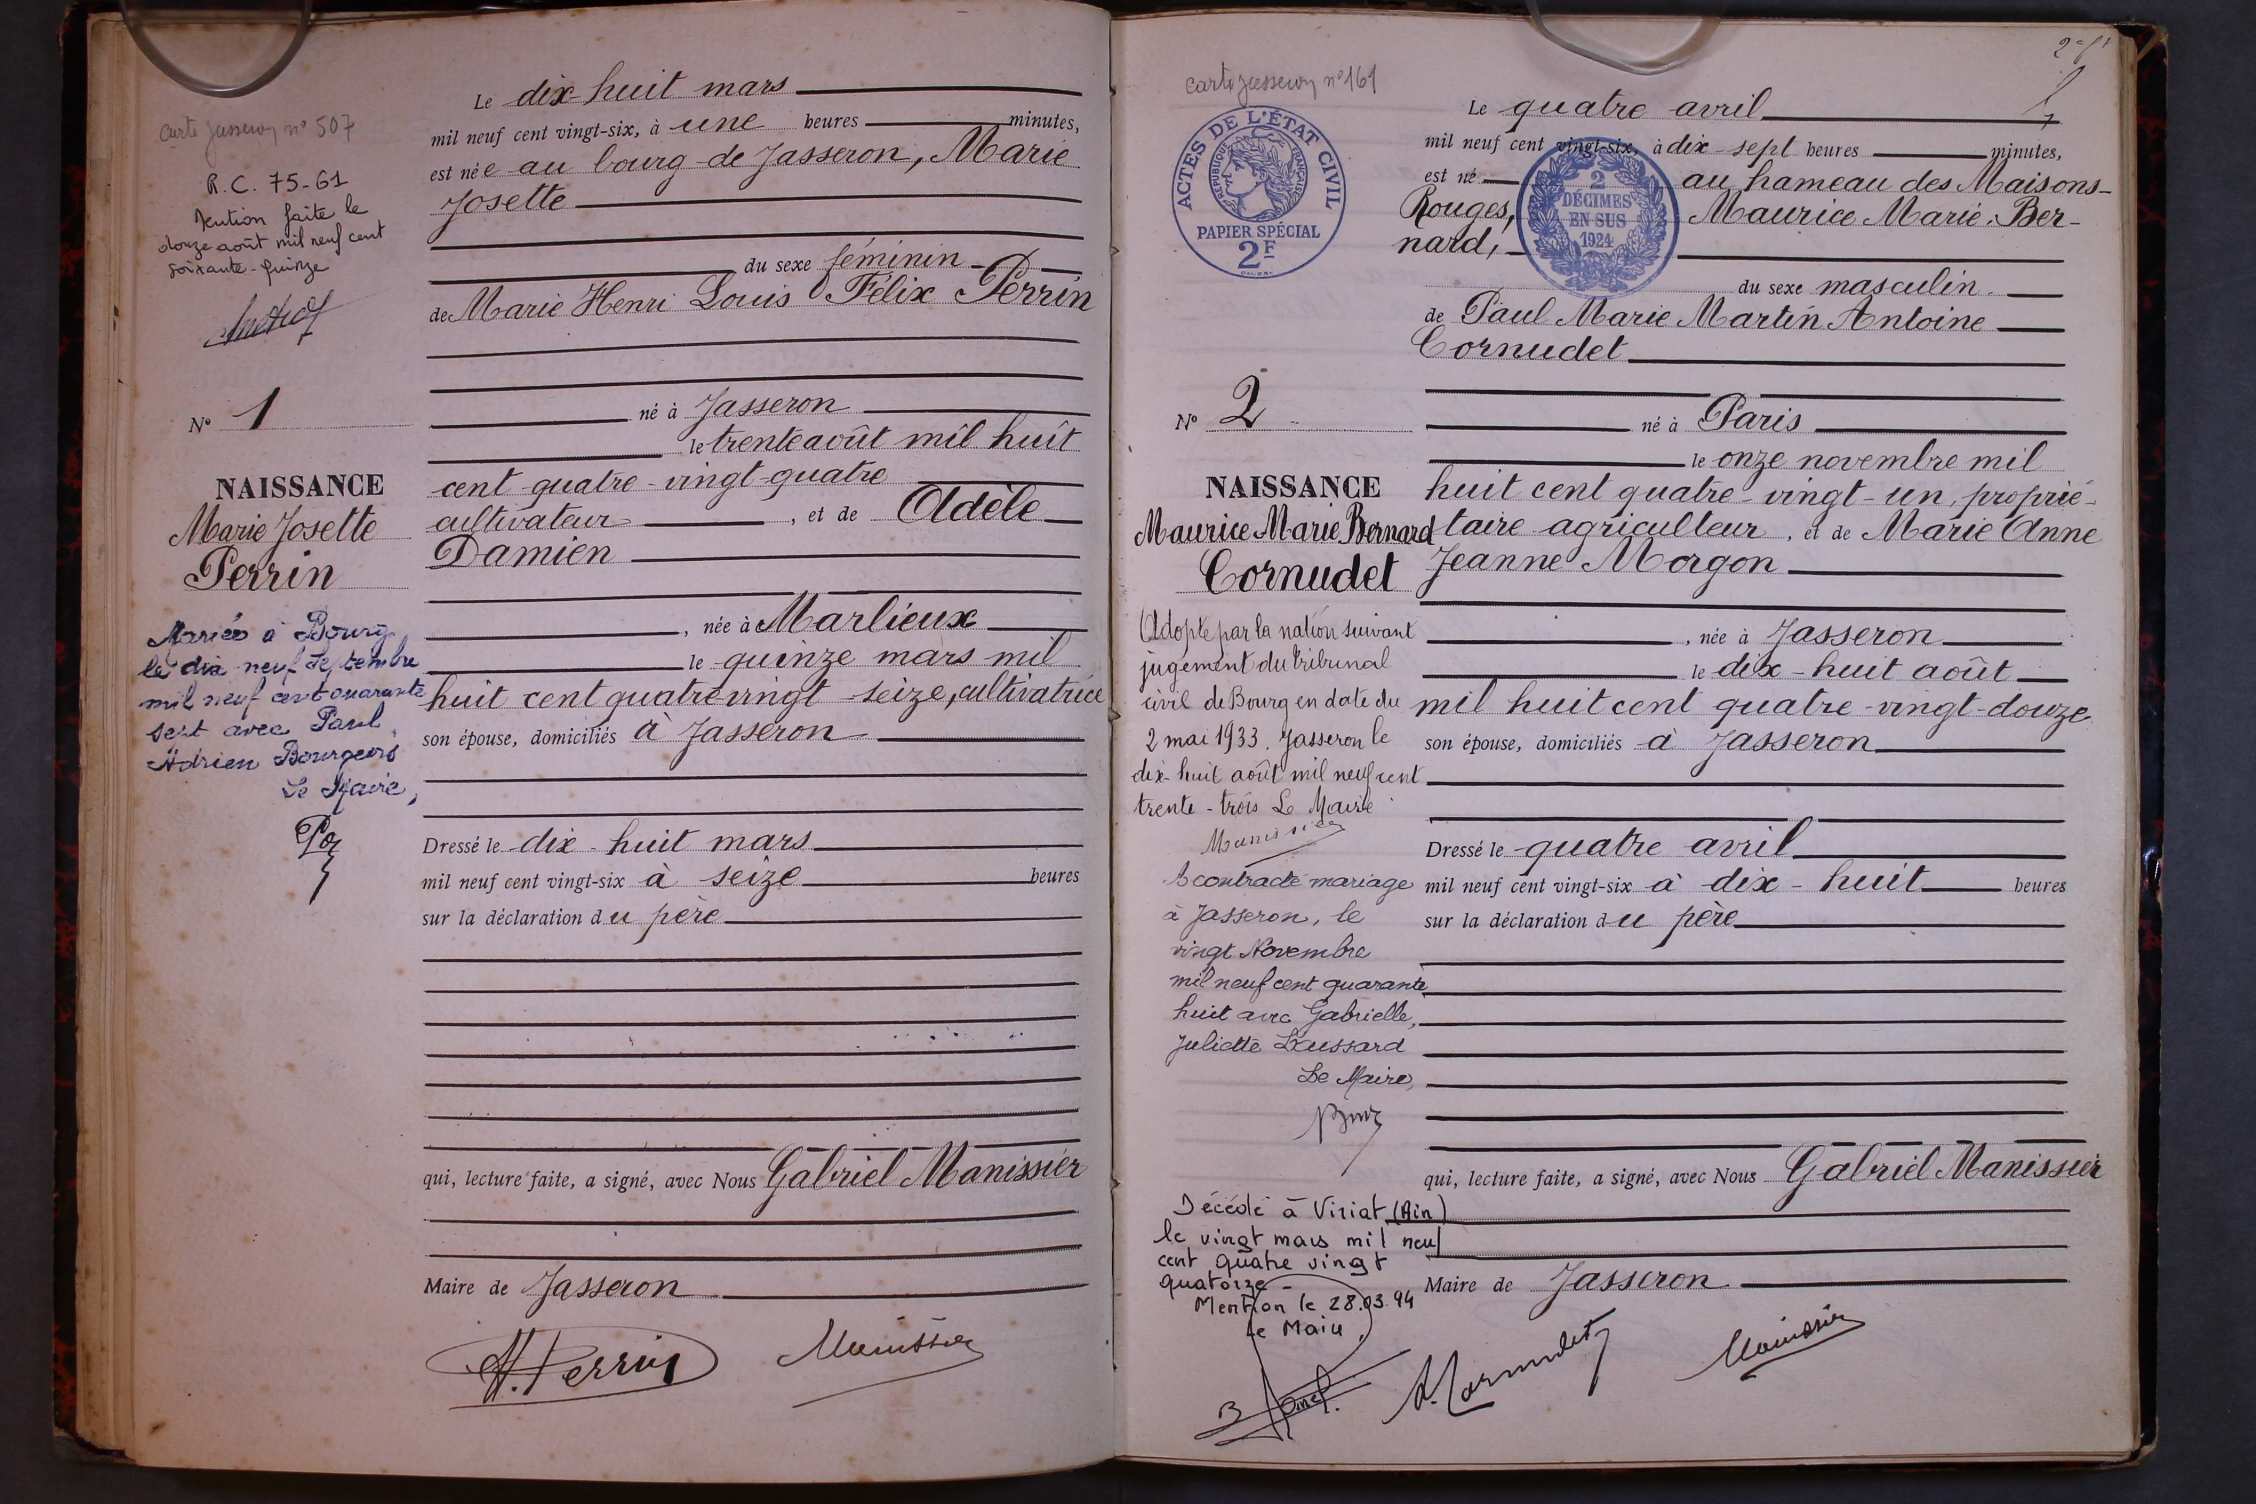 carte Jasseron nº 507
R.C. 75-61
Mention faite le
douze août mil neuf cent
soixante-quinze
Nº 1
NAISSANCE
Marie Josette
Perrin
Mariée à Bourg
le dix neuf septembre
mil neuf cent quarante
sept avec Paul
Adrien Bourgeois
Le Maire,
Le dix-huit mars
mil neuf cent vingt-six, à une heures minutes,
est née au bourg de Jasseron, Marie
Josette
du sexe féminin
de Marie Henri Louis Félix Perrin
né à Jasseron
le trente août mil huit
cent quatre-vingt-quatre
cultivateur , et de Adèle
Damien
, née à Marlieux
le quinze mars mil
huit cent quatre vingt-seize, cultivatrice
son épouse, domiciliés à Jasseron
Dressé le dix-huit mars
mil neuf cent vingt-six à seize heures
sur la déclaration du père
qui, lecture faite, a signé, avec Nous Gabriel Manissier
Maire de Jasseron
H. Perrin Manissier
carte Jasseron nº 161
ACTES DE L'ÉTAT CIVIL
RÉPUBLIQUE FRANÇAISE
PAPIER SPÉCIAL
2F
Nº 2
NAISSANCE
Maurice Marie Bernard
Cornudet
Adopté par la nation suivant
jugement du tribunal
civil de Bourg en date du
2 mai 1933. Jasseron le
dix-huit août mil neuf cent
trente-trois Le Maire
Manissier
A contracté mariage
à Jasseron, le
vingt Novembre
mil neuf cent quarante
huit avec Gabrielle,
Juliette
Le Maire,
Décédé à Viriat (Ain)
le vingt mars mil neuf
cent quatre vingt
quatorze -
Mention le 28.03.94
Le Maire,
Le quatre avril
mil neuf cent vingt-six, à dix-sept heures minutes,
est né au hameau des Maisons-
Rouges, Maurice Marie Ber-
nard,
2
DÉCIMES
EN SUS
1924
du sexe masculin
de Paul Marie Martin Antoine
Cornudet
né à Paris
le onze novembre mil
huit cent quatre-vingt-un, proprié-
taire agriculteur , et de Marie Anne
Jeanne Morgon
, née à Jasseron
le dix-huit août
mil huit cent quatre-vingt-douze
son épouse, domiciliés à Jasseron
Dressé le quatre avril
mil neuf cent vingt-six à dix-huit heures
sur la déclaration du père
qui, lecture faite, a signé, avec Nous Gabriel Manissier
Maire de Jasseron
Cornudet Manissier